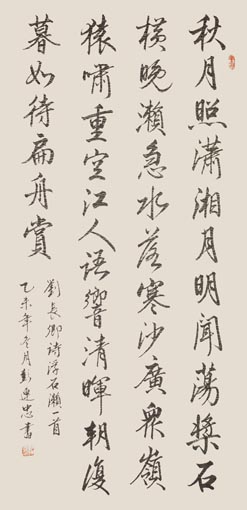 秋月照瀟湘月明聞蕩槳石
橫晚瀨急水落寒沙廣衆嶺
猿嘯重空江人語響清暉朝復
暮如待扁舟賞
劉長卿詩浮石瀨一首
乙未年冬月彭建忠書